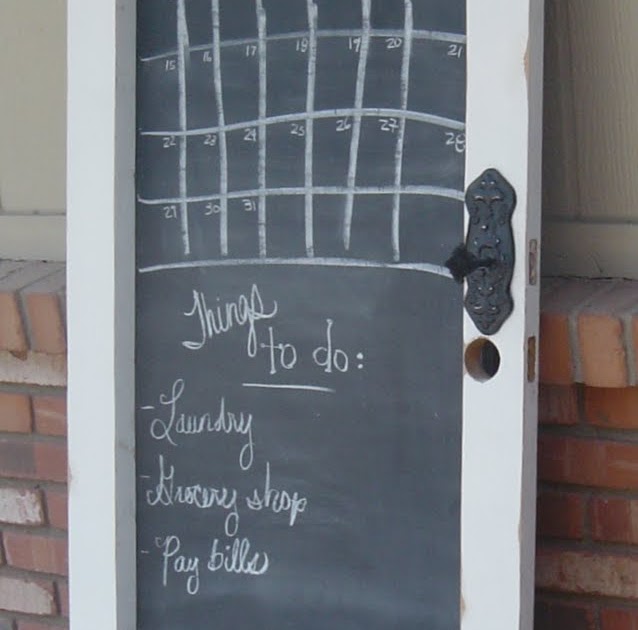 15 16 17 18 19 20 21
22 23 24 25 26 27 28
29 30 31
Things
to do:
-Laundry
-Grocery shop
-Pay bills